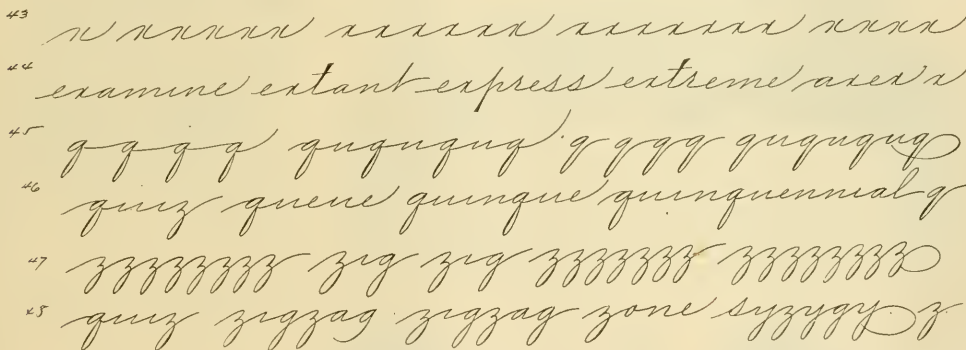 43 x xxxxx xxxxxx xxxxxxx xxxx
44 examine extant express extreme axex'x
45 q q q q quququq q q q q quququq
46 quiz queue quinque quinquennial q
47 zzzzzzz zig zig zzzzzzz zzzzzzzz
48 quiz zigzag zigzag zone syzygy z